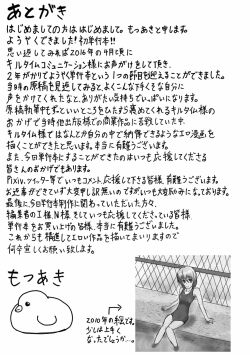 あとがき
はじめましての方ははじめまして。もっあきと申します。
ようやくできました！初単行本！！
思い返してみれば2016年の4月ごろに
キルタイムコミュニケーション様にお声がけをして頂き、
2年がかりでようやく単行本という1つの節目を迎えることができました。
当時の原稿を見返してみると、よくこんな下手くそな自分に
声をかけてくれたなと、ありがたい気持ちでいっぱいになります。
おかげで
キルタイム様ではなんとか自分の中で納得できるようなエロ漫画を
描くことができたと思います。本当に有難うございます。
また、今日単行本にすることができたのはいつも応援してくださる
皆さんのおかげでもあります。
Pixiv、ツイッター等でいつもコメント、応援して下さる皆様、有難うございます。
お返事ができていず大変申し訳無いのですがいつも大変励みになっております。
最後に、今日単行本制作に関わっていただいた方々、
編集者の工様、N様、そしていつも応援してくださっている皆様、
単行本をお買い上げの皆様、本当に有難うございました。
これからも精進してエロい作品を描いてまいりますので
何卒宜しくお願い致します。
もっあき
2010年の絵です。
少しは上手く
なったでしょうか…。